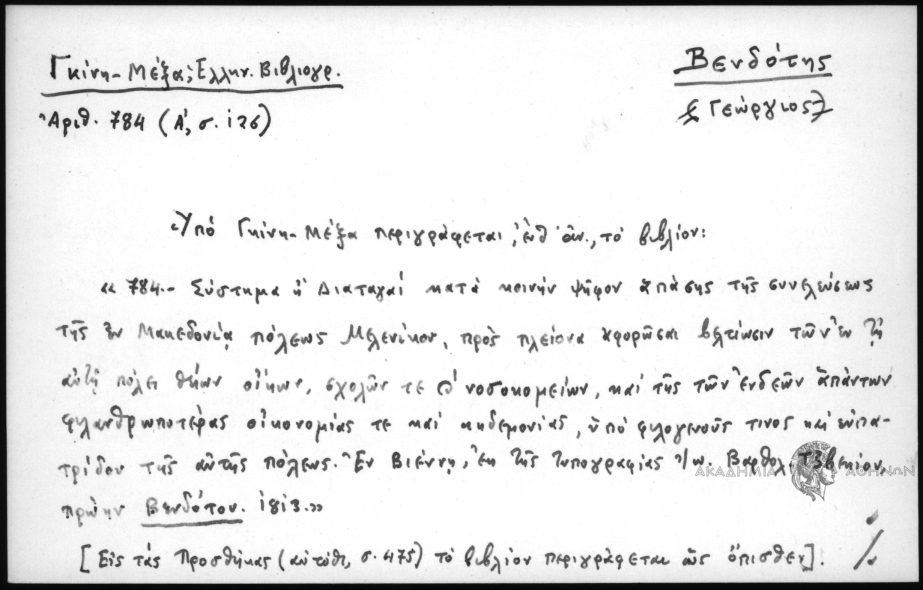 Γκίνη-Μέξα, Ἑλλην. Βιβλιογρ.
Βενδότης
Ἀριθ. 784 (Α', σ. 126)
(Γεώργιος)
Ὑπό Γκίνη-Μέξα περιγράφεται, ἐνθ' ἀν., τό βιβλίον:
« 784.- Σύστημα ἤ Διαταγαί κατά κοινήν ψῆφον ἁπάσης τῆς συνελεύσεως
τῆς ἐν Μακεδονίᾳ πόλεως Μελενίκου, πρός πλείονα ἀφορῶσαι βελτίωσιν τῶν ἐν τῇ
αὐτῇ πόλει θείων οἴκων, σχολῶν τε & νοσοκομείων, καί τῆς τῶν ἐνδεῶν ἁπάντων
φιλανθρωποτέρας οἰκονομίας τε καί κηδεμονίας, ὑπό φιλογενοῦς τινος καί εὐπα-
τρίδου τῆς αὐτῆς πόλεως. Ἐν Βιέννῃ, ἐκ τῆς τυπογραφίας Ἰω. Βαρθολ. Τζβεκίου,
πρῴην Βενδότου. 1813.»
[Εἰς τάς Προσθήκας (αὐτόθι, σ. 475) τό βιβλίον περιγράφεται ὡς ὄπισθεν]. ./.
ΑΚΑΔΗΜΙΑ ΑΘΗΝΩΝ